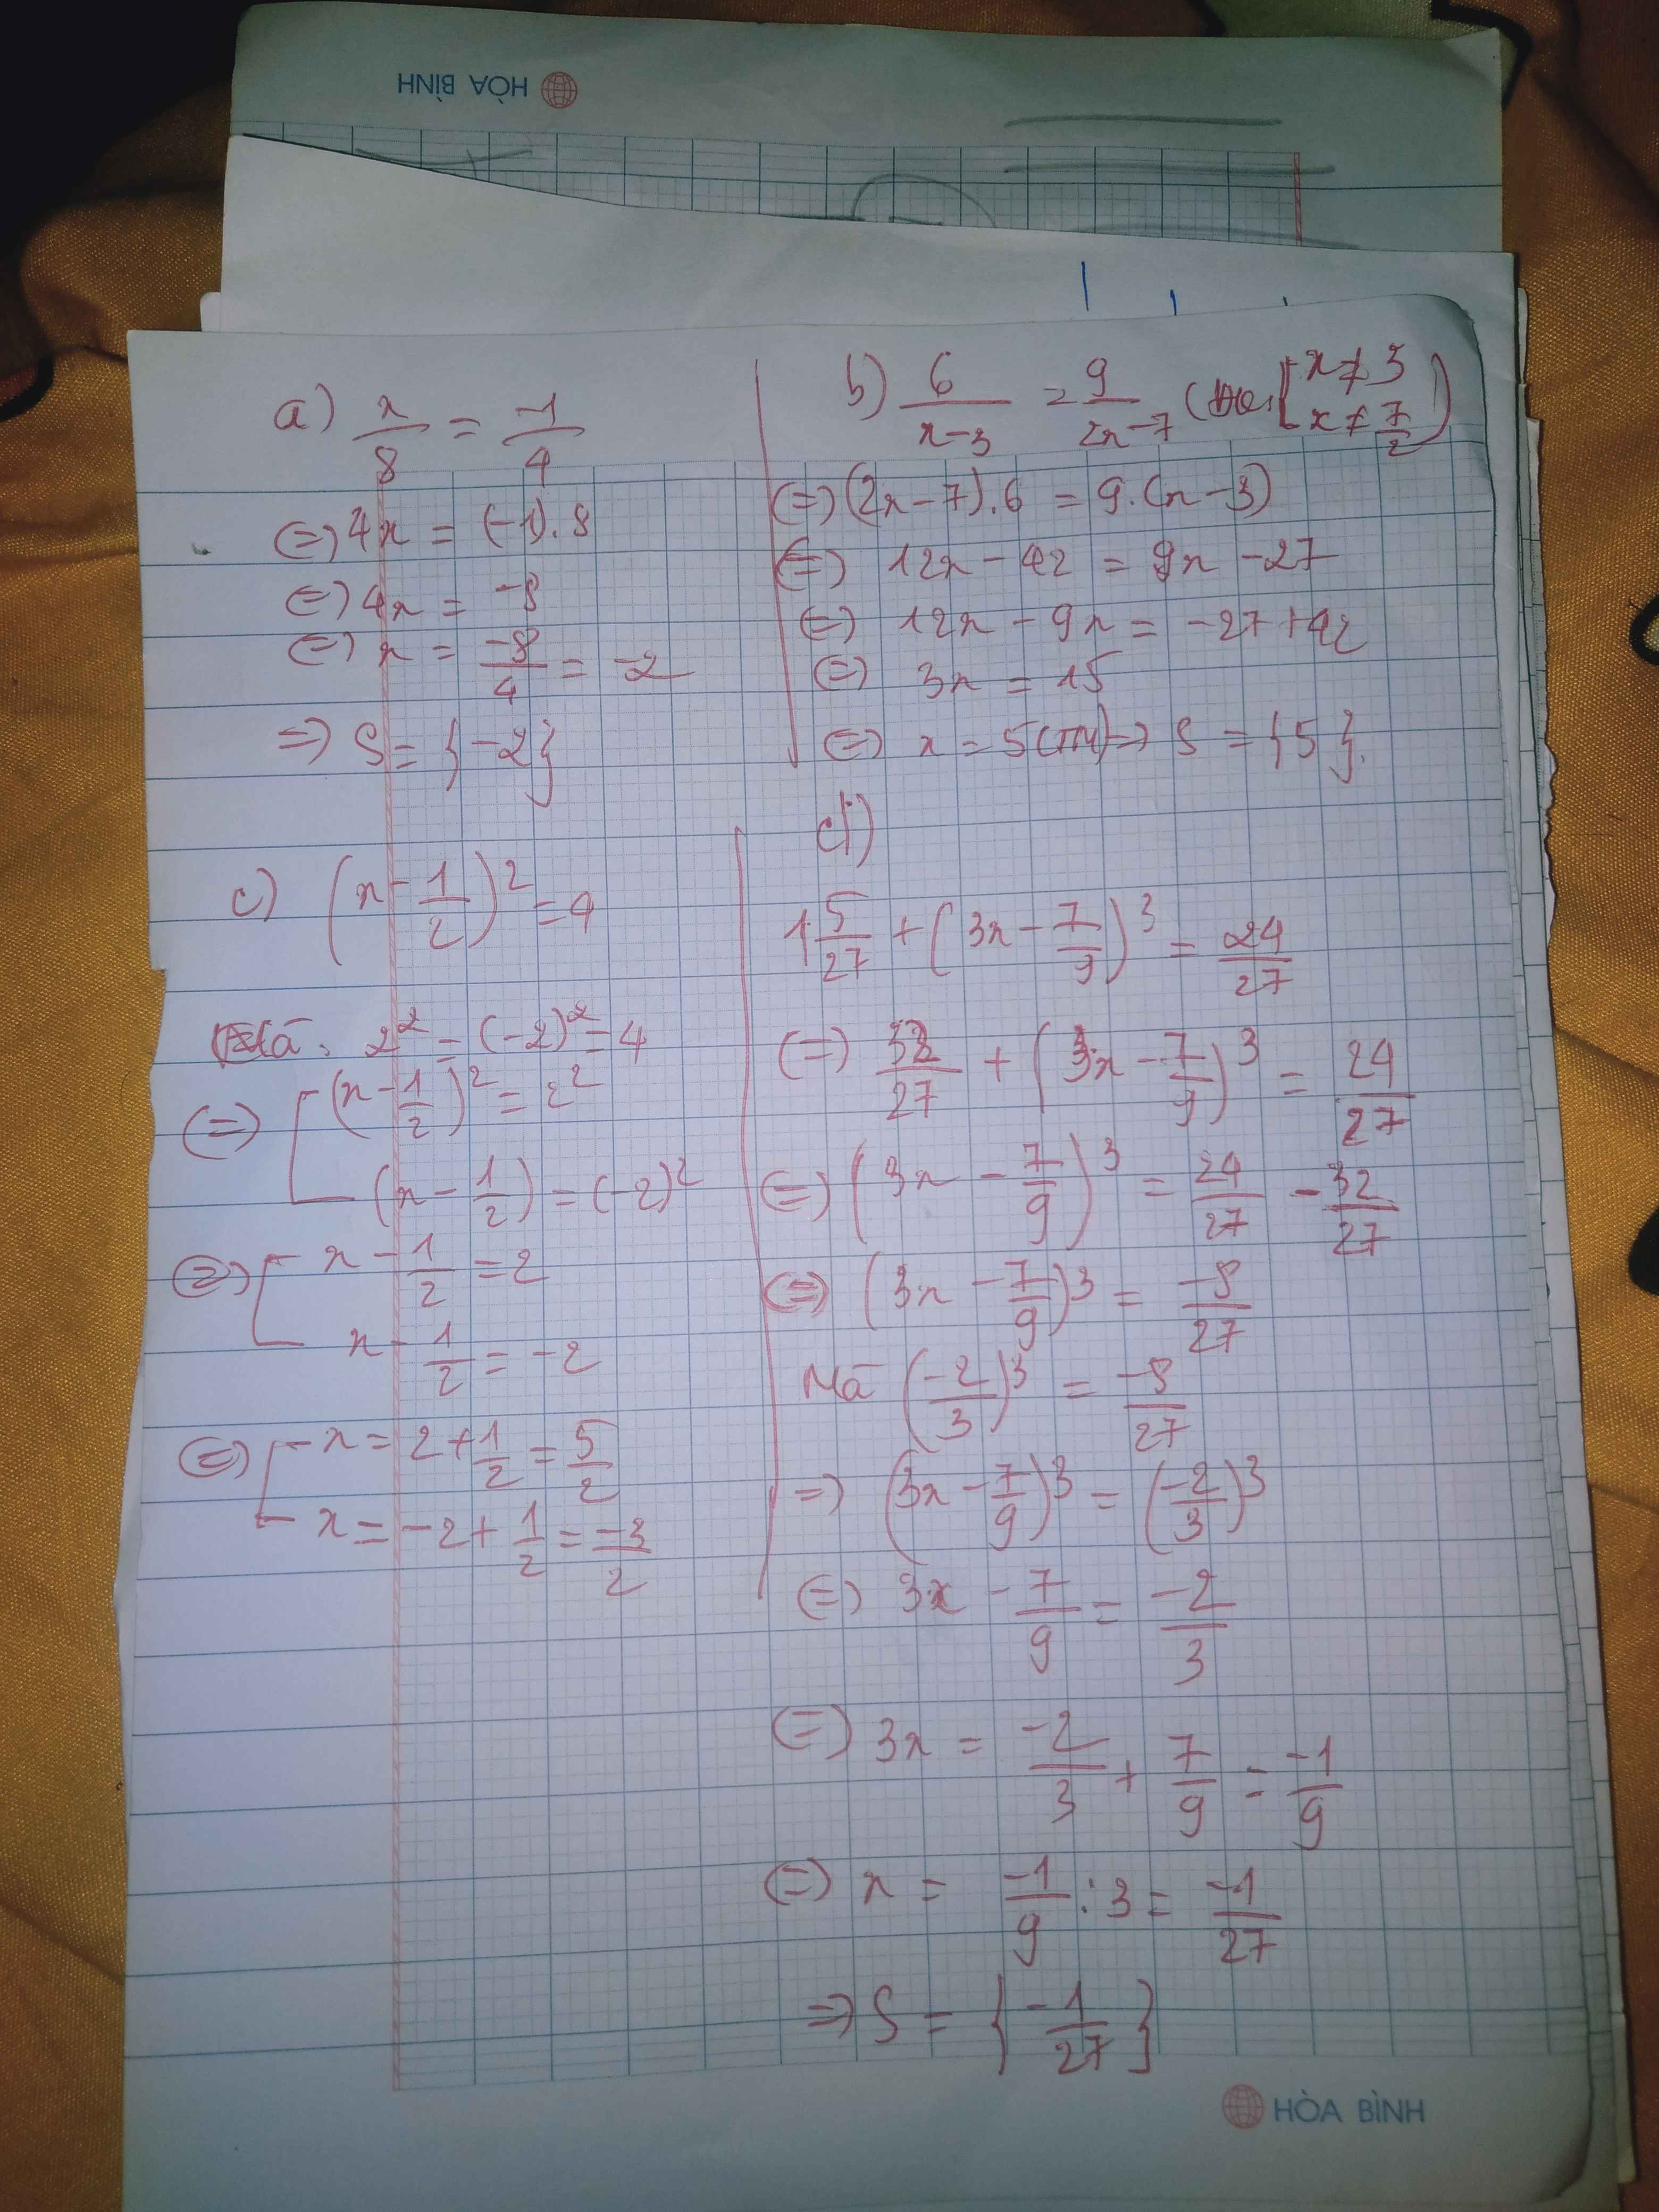 HÒA BÌNH
a) x/8 = -1/4
(=) 4x = (-1).8
(=) 4x = -8
(=) x = -8/4 = -2
=> S = {-2}
b) 6/(x-3) = 9/(2x-7) ( [x≠3 x≠7/2)
(=) (2x-7).6 = 9.(x-3)
(=) 12x - 42 = 9x - 27
(=) 12x - 9x = -27+42
(=) 3x = 15
(=) x = 5(TM) => S = {5}.
c) (x - 1/2)² = 4
Mà 2² = (-2)² = 4
(=) [ (x - 1/2)² = 2²
(x - 1/2) = (-2)²
(=) [ x - 1/2 = 2
x - 1/2 = -2
(=) [ x = 2 + 1/2 = 5/2
x = -2 + 1/2 = -3/2
d)
1 5/27 + (3x - 7/9)³ = 24/27
(=) 32/27 + (3x - 7/9)³ = 24/27
(=) (3x - 7/9)³ = 24/27 - 32/27
(=) (3x - 7/9)³ = -8/27
Mà (-2/3)³ = -8/27
=> (3x - 7/9)³ = (-2/3)³
(=) 3x - 7/9 = -2/3
(=) 3x = -2/3 + 7/9 = -1/9
(=) x = -1/9 : 3 = -1/27
=> S = {-1/27}
HÒA BÌNH